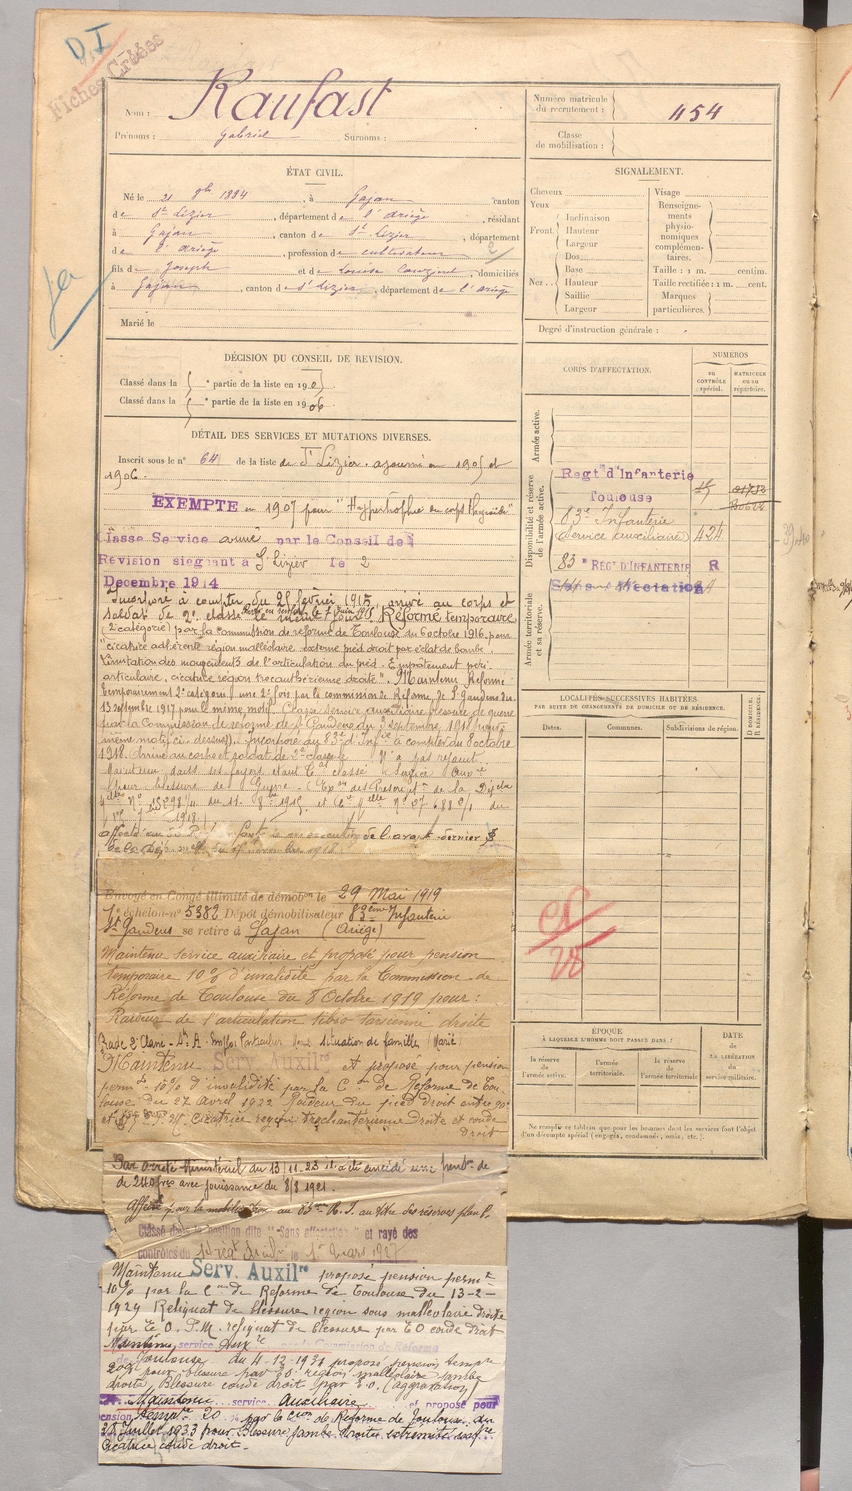 D.I
Fiches Créées
Nom : Raufast
Prénoms : Gabriel Surnoms :
Numéro matricule du recrutement : 454
Classe de mobilisation :
ÉTAT CIVIL.
Né le 21 8bre 1884, à Gajan canton
de St Lizier, département de l'Ariège, résidant
à Gajan, canton de St Lizier, département
de l'Ariège, profession de cultivateur
fils de Joseph et de Louise, domiciliés
à Gajan, canton de St Lizier, département de l'Ariège
Marié le
SIGNALEMENT.
Cheveux
Yeux
Front
Inclinaison
Hauteur
Largeur
Nez
Dos
Base
Hauteur
Saillie
Largeur
Visage
Renseignements physionomiques complémentaires.
Taille : 1 m. centim.
Taille rectifiée : 1 m. cent.
Marques particulières.
Degré d'instruction générale :
DÉCISION DU CONSEIL DE REVISION.
Classé dans la e partie de la liste en 190
Classé dans la e partie de la liste en 1906
DÉTAIL DES SERVICES ET MUTATIONS DIVERSES.
Inscrit sous le n° 64 de la liste de St Lizier. ajourné en 1905 et
1906.
EXEMPTÉ en 1907 pour "Hypertrophie du corps thyroïde"
Classé Service armé par le Conseil de
Révision siégeant à St Lizier le 2
Décembre 1914
Incorporé à compter du février 1915 arrivé au corps et
soldat de 2e classe le même jour. Réformé temporaire
(2e catégorie) par la commission de réforme de Toulouse du 6 octobre 1916 pour
"cicatrice adhérente région malléolaire externe pied droit par éclat de bombe.
Limitation des mouvements de l'articulation du pied. Empâtement péri-
articulaire, cicatrice région trochantérienne droite". Maintenu Réformé
temporairement 2e catégorie une 2e fois par la commission de Réforme de St Gaudens du
13 septembre 1917 pour le même motif. Classé service auxiliaire blessure de guerre
par la Commission de réforme de St Gaudens du septembre 1918 (pour
même motif ci-dessus). Incorporé au 83e d'Infie à compter du 8 octobre
1918. Arrivé au corps et soldat de 2e classe N'a pas rejoint.
Maintenu dans ses foyers étant classé Service Auxre
pour blessure de Guerre
de l'avant-dernier §
Envoyé en Congé illimité de démobon le 29 Mai 1919
échelon n° 5382 Dépôt démobilisateur 83ème Infanterie
St Gaudens se retire à Gajan (Ariège)
Maintenu service auxiliaire et proposé pour pension
temporaire 10% d'invalidité par la Commission de
Réforme de Toulouse du 8 Octobre 1919 pour :
Raideur de l'articulation tibio tarsienne droite
Emploi Particulier pour situation de famille (Marié)
Maintenu Serv. Auxilre et proposé pour pension
permte 10% d'invalidité par la Con de Réforme de Tou-
louse du 27 avril 1922 Raideur du pied droit entre 90°
et cicatrice région trochantérienne droite et coude
droit
Par arrêté Ministériel du 13/11.23 il a été concédé une pension de
de 240 frs avec jouissance du 8/8 1921.
Affecté pour la mobilisation au 83me R.I. au titre des réserves
Classé dans la position dite "Sans affectation" et rayé des
contrôles du le 1er Mars 1927
Maintenu Serv. Auxilre proposé pension permte
10% par la Con de Réforme de Toulouse du 13-2-
1929 Reliquat de blessure région sous malléolaire droite
par E.O. P.M. reliquat de blessure par E.O coude droit
Maintenu service Auxre par la Commission de Réforme
de Toulouse du 4-12-1931 proposé pension tempre
20% pour blessure par E.O. région malléolaire jambe
droite, Blessure coude droit par E.O. (aggravation)
Maintenu service Auxiliaire et proposé pour
pension tempre 20% par la Con de Réforme de Toulouse du
28 Juillet 1933 pour Blessure jambe droite extrémité
cicatrice coude droit.
CORPS D'AFFECTATION.
NUMÉROS
DU CONTRÔLE spécial.
MATRICULE OU AU répertoire.
Armée active.
Disponibilité et réserve de l'armée active.
Régt d'Infanterie
Toulouse
83e Infanterie
(service auxiliaire) 424
83e RÉGt D'INFANTERIE R
Sans affectation
Armée territoriale et sa réserve.
LOCALITÉS SUCCESSIVES HABITÉES
PAR SUITE DE CHANGEMENTS DE DOMICILE OU DE RÉSIDENCE.
Dates.
Communes.
Subdivisions de région.
D DOMICILE.
R RÉSIDENCE.
ÉPOQUE
À LAQUELLE L'HOMME DOIT PASSER DANS :
la réserve de l'armée active.
l'armée territoriale.
la réserve de l'armée territoriale
DATE
de LA LIBÉRATION du service militaire.
Ne remplir ce tableau que pour les hommes dont les services font l'objet
d'un décompte spécial (engagés, condamnés, omis, etc.).